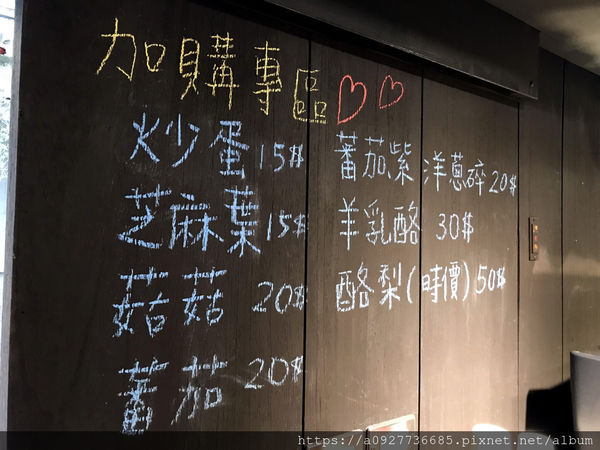 加購專區
炒蛋 15$
芝麻葉 15$
菇菇 20$
蕃茄 20$
蕃茄紫洋蔥碎 20$
羊乳酪 30$
酪梨(時價) 50$
https://a0927736685.pixnet.net/album